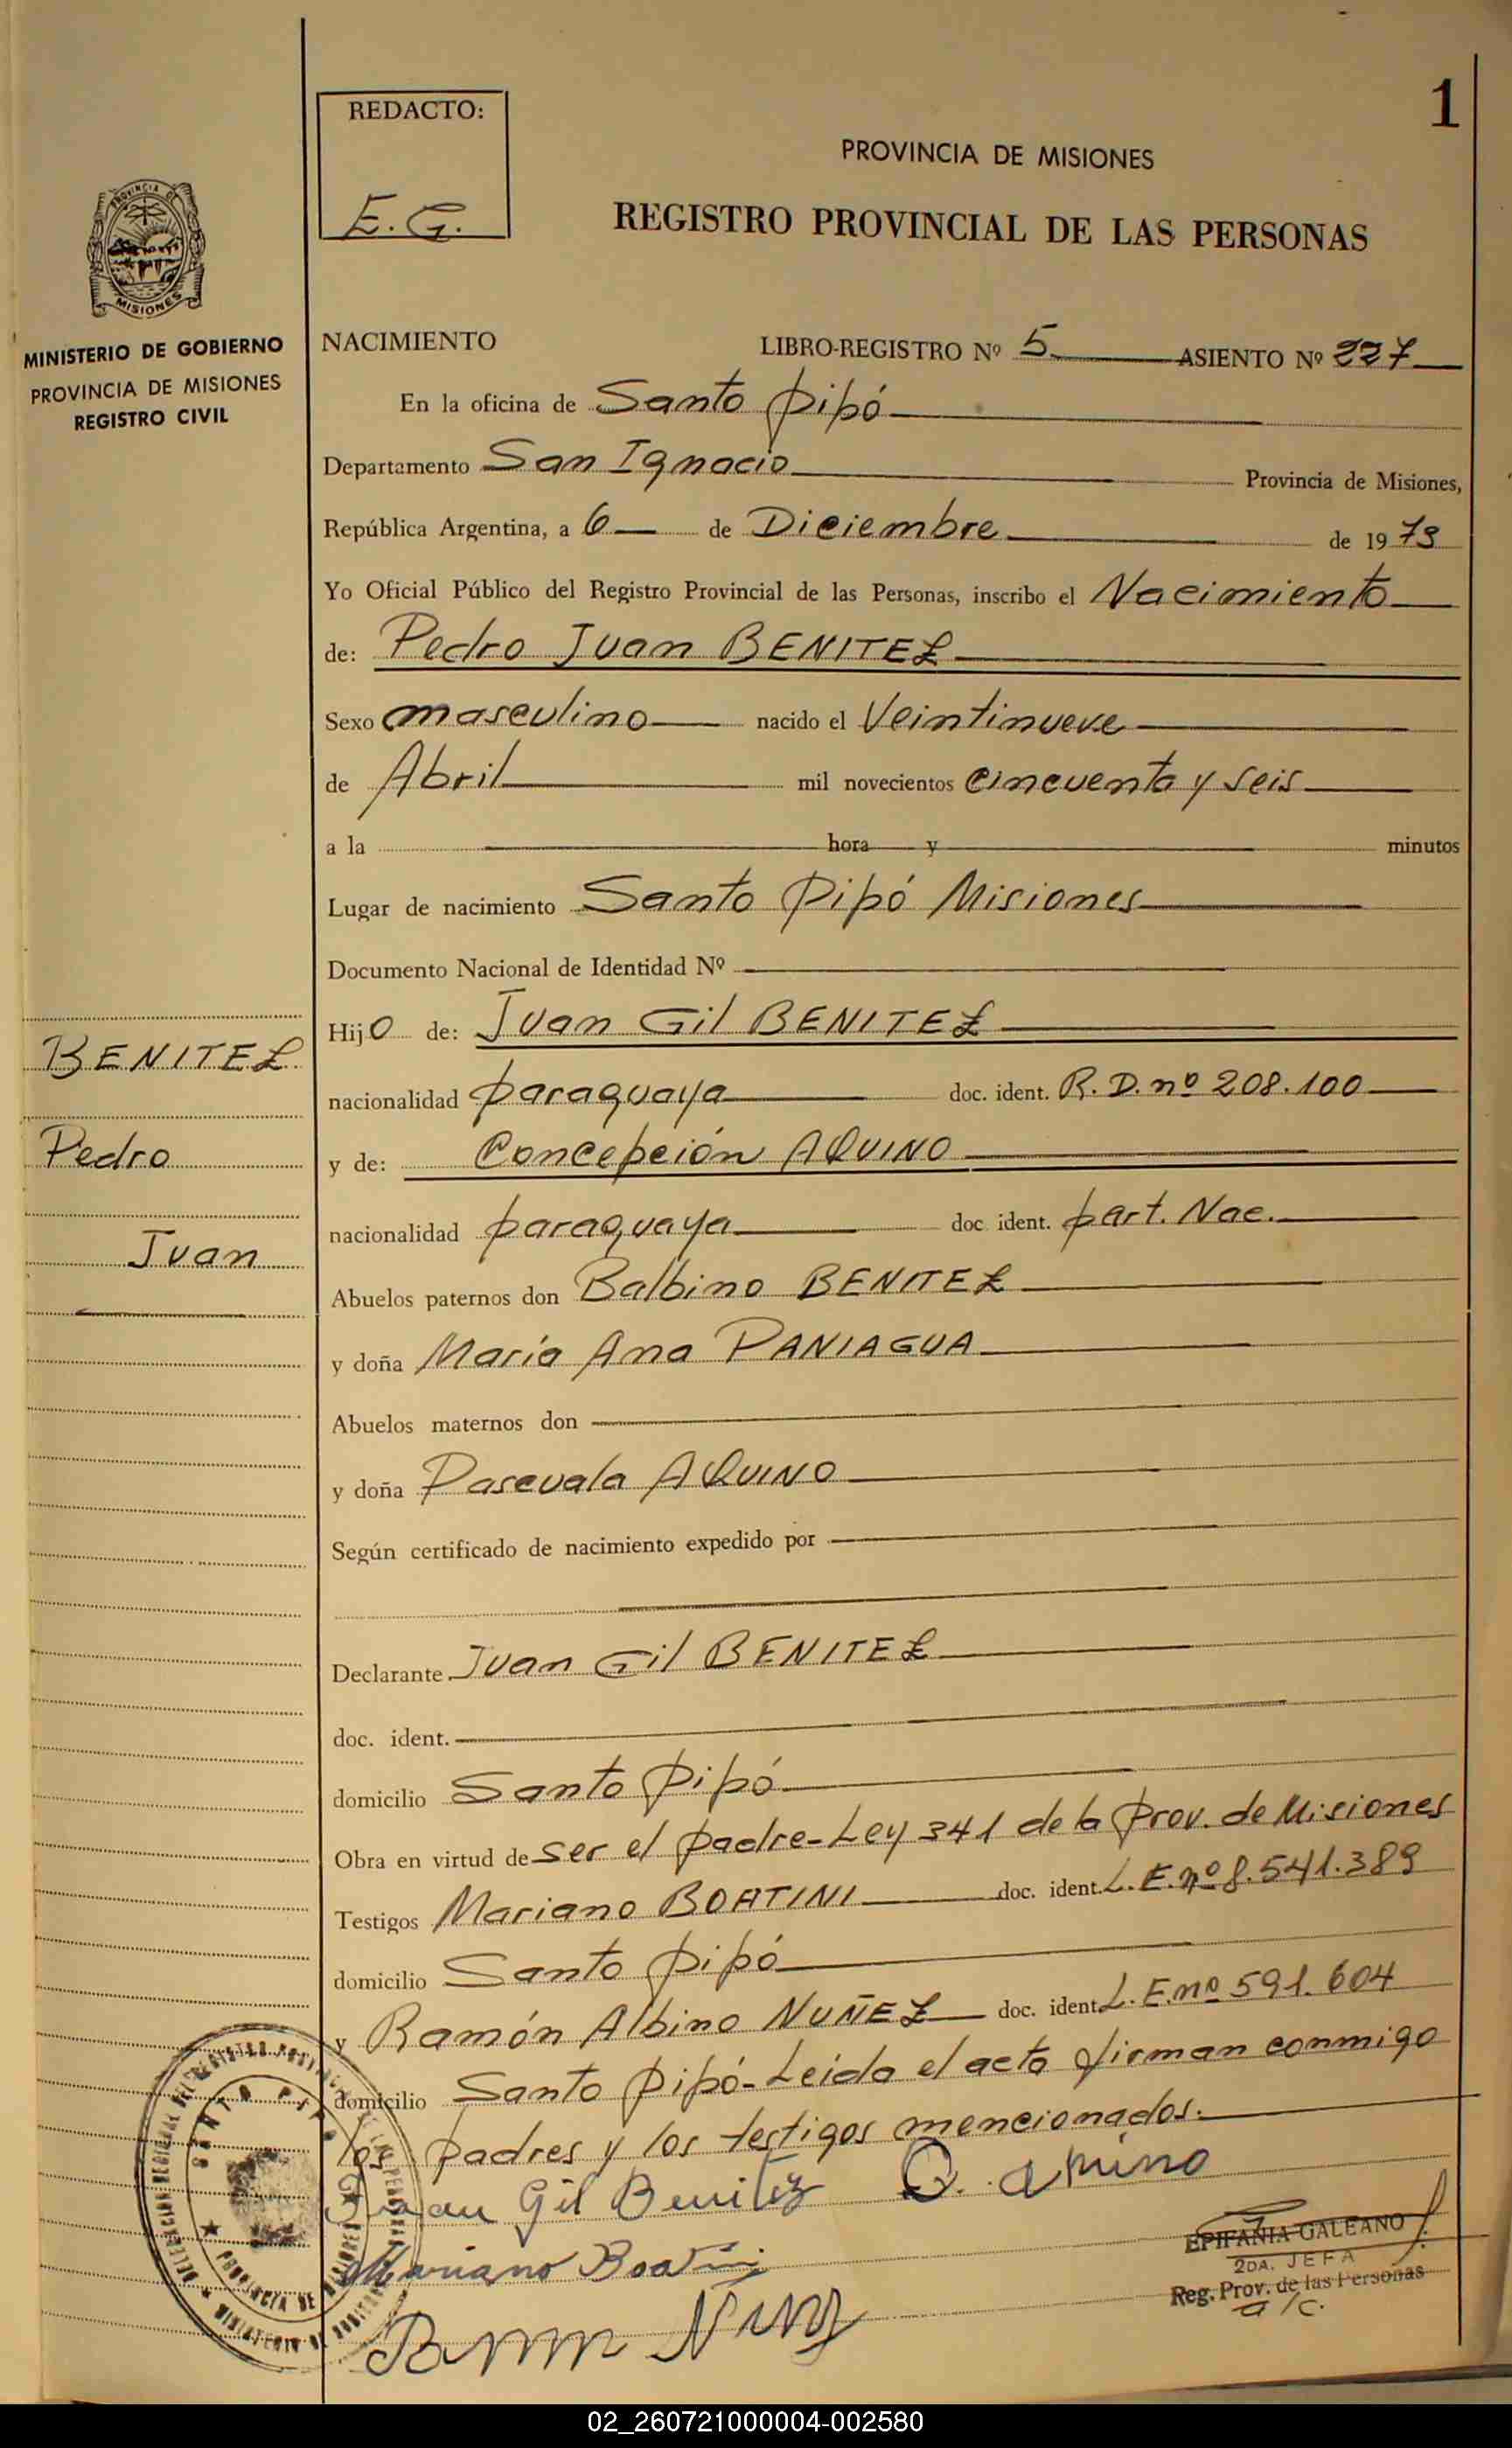 1
REDACTO:
E.G.
PROVINCIA DE MISIONES
REGISTRO PROVINCIAL DE LAS PERSONAS
PROVINCIA DE
MISIONES
MINISTERIO DE GOBIERNO
PROVINCIA DE MISIONES
REGISTRO CIVIL
NACIMIENTO LIBRO-REGISTRO Nº 5 ASIENTO Nº 227
En la oficina de Santo Pipó
Departamento San Ignacio Provincia de Misiones,
República Argentina, a 6 de Diciembre de 1973
Yo Oficial Público del Registro Provincial de las Personas, inscribo el Nacimiento
de: Pedro Juan BENITEZ
Sexo masculino nacido el Veintinueve
de Abril mil novecientos cincuenta y seis
a la hora y minutos
Lugar de nacimiento Santo Pipó Misiones
Documento Nacional de Identidad Nº
Hijo de: Juan Gil BENITEZ
nacionalidad paraguaya doc. ident. R. D. nº 208.100
y de: Concepción AQUINO
nacionalidad paraguaya doc ident. part. Nac.
Abuelos paternos don Balbino BENITEZ
y doña María Ana PANIAGUA
Abuelos maternos don
y doña Pascuala AQUINO
Según certificado de nacimiento expedido por
Declarante Juan Gil BENITEZ
doc. ident.
domicilio Santo Pipó
Obra en virtud de ser el padre-Ley 341 de la Prov. de Misiones
Testigos Mariano BOATINI doc. ident. L. E. nº 8.541.389
domicilio Santo Pipó
y Ramón Albino NUÑEZ doc. ident. L. E. nº 591.604
domicilio Santo Pipó-Leida el acta firman conmigo
los padres y los testigos mencionados.
Juan Gil Benitez
Mariano
EPIFANIA GALEANO
2DA. JEFA
Reg. Prov. de las Personas
a/c.
BENITEZ
Pedro
Juan
SANTO PIPO
PROVINCIA DE MISIONES
02_260721000004-002580